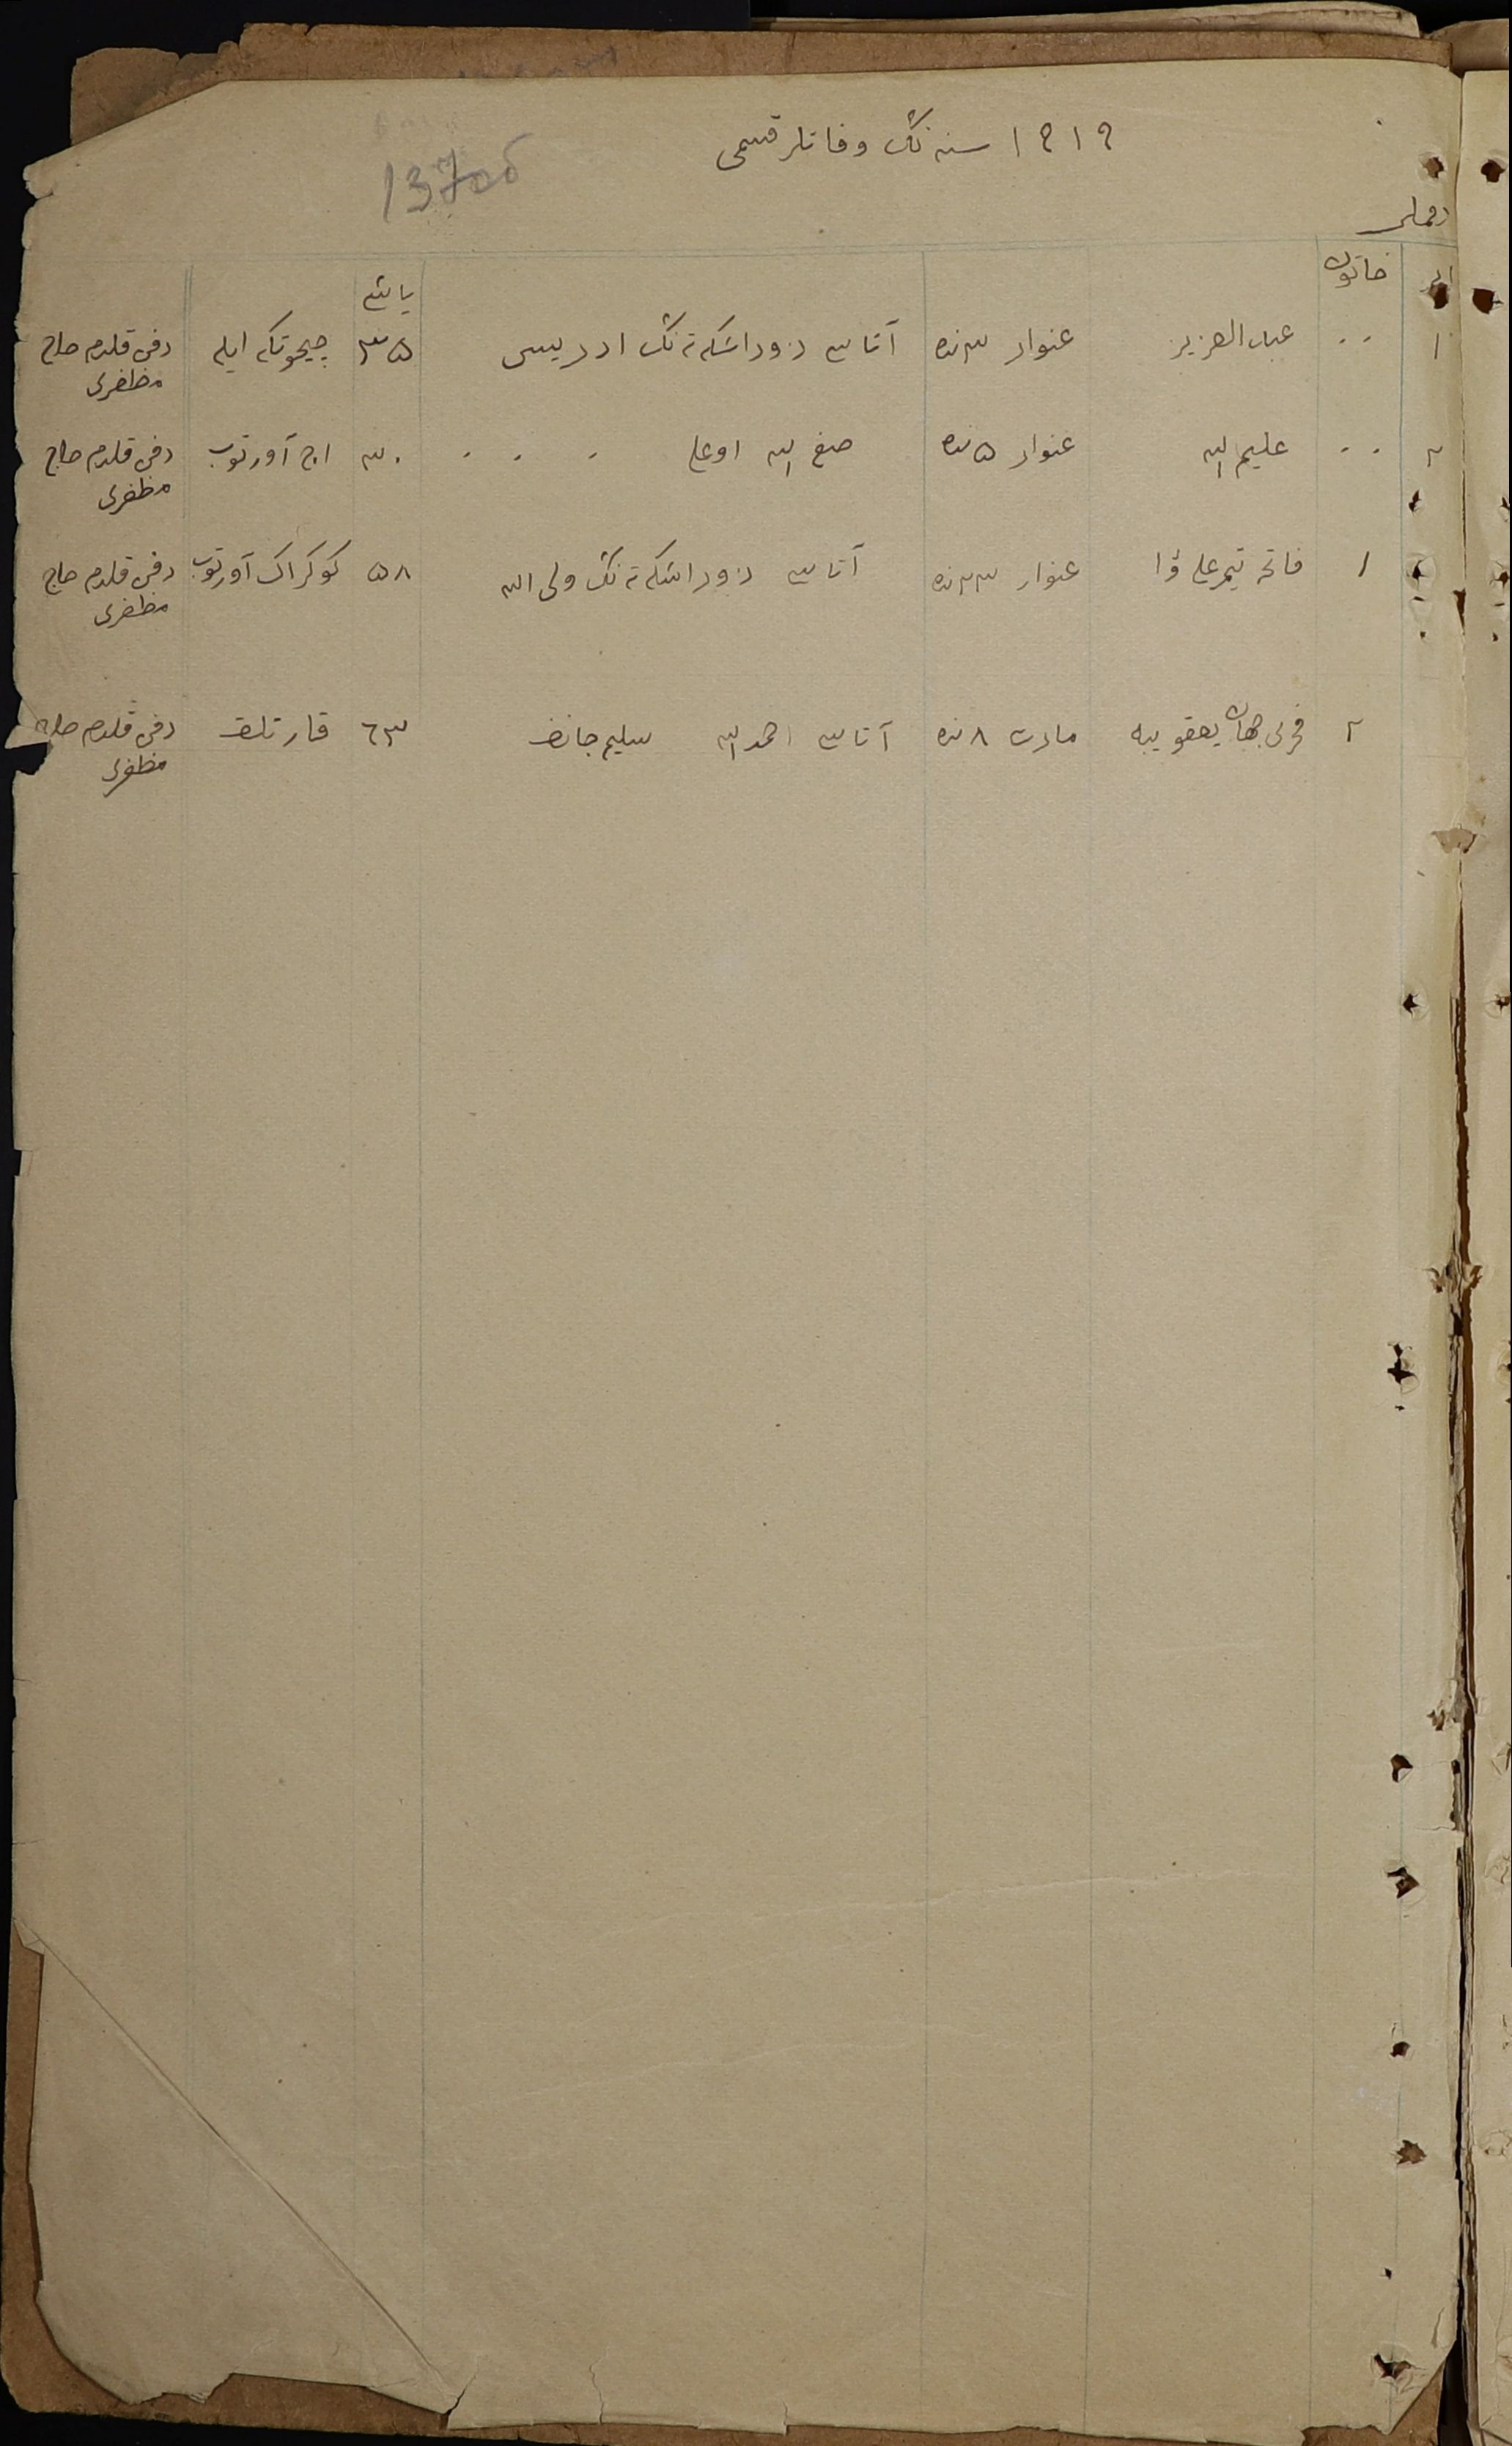 ١٩١٩ سنه نڭ وفاتلر قسمی
137об
خاتون
یاشی
١ ٠٠ عبدالعزیز عنوار ٣ نده آتاسی دزوراسکه نڭ ادریس ٣٥ چیچوتکه ایله دفن قلدم صلاح مظفری
٢ ٠٠ علیم الله عنوار ٥ نده صنع الله اوغلی ٠ ٠ ٠ ٣٠ اچ آورتوب دفن قلدم صلاح مظفری
١ فاتحه تیمرعلی وا عنوار ٢٣ نده آتاسی دزوراسکه نڭ ولی الله ٥٨ کوکراک آورتوب دفن قلدم صلاح مظفری
٢ فخری جهان یعقوبیه مارت ٨ نده آتاسی احمدالله سلیم جانف ٦٣ قارتلق دفن قلدم صلاح مظفری